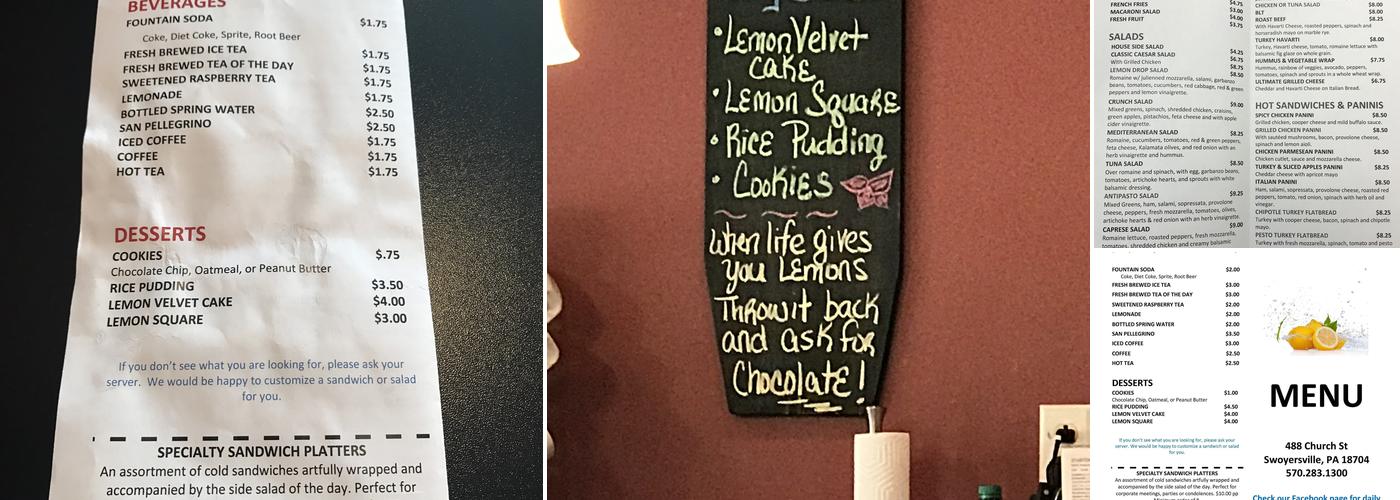 BEVERAGES
FOUNTAIN SODA $1.75
Coke, Diet Coke, Sprite, Root Beer
FRESH BREWED ICE TEA $1.75
FRESH BREWED TEA OF THE DAY $1.75
SWEETENED RASPBERRY TEA $1.75
LEMONADE $1.75
BOTTLED SPRING WATER $2.50
SAN PELLEGRINO $2.50
ICED COFFEE $1.75
COFFEE $1.75
HOT TEA $1.75
DESSERTS
COOKIES $.75
Chocolate Chip, Oatmeal, or Peanut Butter
RICE PUDDING $3.50
LEMON VELVET CAKE $4.00
LEMON SQUARE $3.00
If you don't see what you are looking for, please ask your
server. We would be happy to customize a sandwich or salad
for you.
SPECIALTY SANDWICH PLATTERS
An assortment of cold sandwiches artfully wrapped and
accompanied by the side salad of the day. Perfect for
• Lemon Velvet
Cake
• Lemon Square
• Rice Pudding
• Cookies
When life gives
you Lemons
Throw it back
and ask for
Chocolate!
FRENCH FRIES $4.75
MACARONI SALAD $3.00
FRESH FRUIT $4.00
$3.75
SALADS
HOUSE SIDE SALAD
CLASSIC CAESAR SALAD $4.25
With Grilled Chicken $6.75
LEMON DROP SALAD $8.75
$8.50
Romaine w/ julienned mozzarella, salami, garbanzo
beans, tomatoes, cucumbers, red cabbage, red & green
peppers and lemon vinaigrette.
CRUNCH SALAD $9.00
Mixed greens, spinach, shredded chicken, craisins,
green apples, pistachios, feta cheese and with apple
cider vinaigrette.
MEDITERRANEAN SALAD $8.25
Romaine, cucumbers, tomatoes, red & green peppers,
feta cheese, Kalamata olives, and red onion with an
herb vinaigrette and hummus.
TUNA SALAD $8.50
Over romaine and spinach, with egg, garbanzo beans,
tomatoes, artichoke hearts, and sprouts with white
balsamic dressing.
ANTIPASTO SALAD $9.25
Mixed Greens, ham, salami, sopressata, provolone
cheese, peppers, fresh mozzarella, tomatoes, olives,
artichoke hearts & red onion with an herb vinaigrette.
CAPRESE SALAD $9.00
Romaine lettuce, roasted peppers, fresh mozzarella,
tomatoes, shredded chicken and creamy balsamic
CHICKEN OR TUNA SALAD $8.00
BLT $8.00
ROAST BEEF $8.25
With Havarti Cheese, roasted peppers, spinach and
horseradish mayo on marble rye.
TURKEY HAVARTI $8.00
Turkey, Havarti cheese, tomato, romaine lettuce with
balsamic fig glaze on whole grain.
HUMMUS & VEGETABLE WRAP $7.75
Hummus, rainbow of veggies, avocado, peppers,
tomatoes, spinach and sprouts in a whole wheat wrap.
ULTIMATE GRILLED CHEESE $6.75
Cheddar and Havarti Cheese on Italian Bread.
HOT SANDWICHES & PANINIS
SPICY CHICKEN PANINI $8.50
Grilled chicken, cooper cheese and mild buffalo sauce.
GRILLED CHICKEN PANINI $8.50
With sautéed mushrooms, bacon, provolone cheese,
spinach and lemon aioli.
CHICKEN PARMESEAN PANINI $8.50
Chicken cutlet, sauce and mozzarella cheese.
TURKEY & SLICED APPLES PANINI $8.25
Cheddar cheese with apricot mayo
ITALIAN PANINI $8.50
Ham, salami, sopressata, provolone cheese, roasted red
peppers, tomato, red onion, spinach with herb oil and
vinegar.
CHIPOTLE TURKEY FLATBREAD $8.25
Turkey with cooper cheese, bacon, spinach and chipotle
mayo.
PESTO TURKEY FLATBREAD $8.25
Turkey with fresh mozzarella, spinach, tomato and pesto
FOUNTAIN SODA $2.00
Coke, Diet Coke, Sprite, Root Beer
FRESH BREWED ICE TEA $3.00
FRESH BREWED TEA OF THE DAY $3.00
SWEETENED RASPBERRY TEA $2.00
LEMONADE $2.00
BOTTLED SPRING WATER $2.00
SAN PELLEGRINO $3.50
ICED COFFEE $3.00
COFFEE $2.50
HOT TEA $2.50
DESSERTS
COOKIES $1.00
Chocolate Chip, Oatmeal, or Peanut Butter
RICE PUDDING $4.50
LEMON VELVET CAKE $4.00
LEMON SQUARE $4.00
If you don't see what you are looking for, please ask your
server. We would be happy to customize a sandwich or salad
for you.
SPECIALTY SANDWICH PLATTERS
An assortment of cold sandwiches artfully wrapped and
accompanied by the side salad of the day. Perfect for
corporate meetings, parties or condolences. $10.00 pp
MENU
488 Church St
Swoyersville, PA 18704
570.283.1300
Check our Facebook page for daily